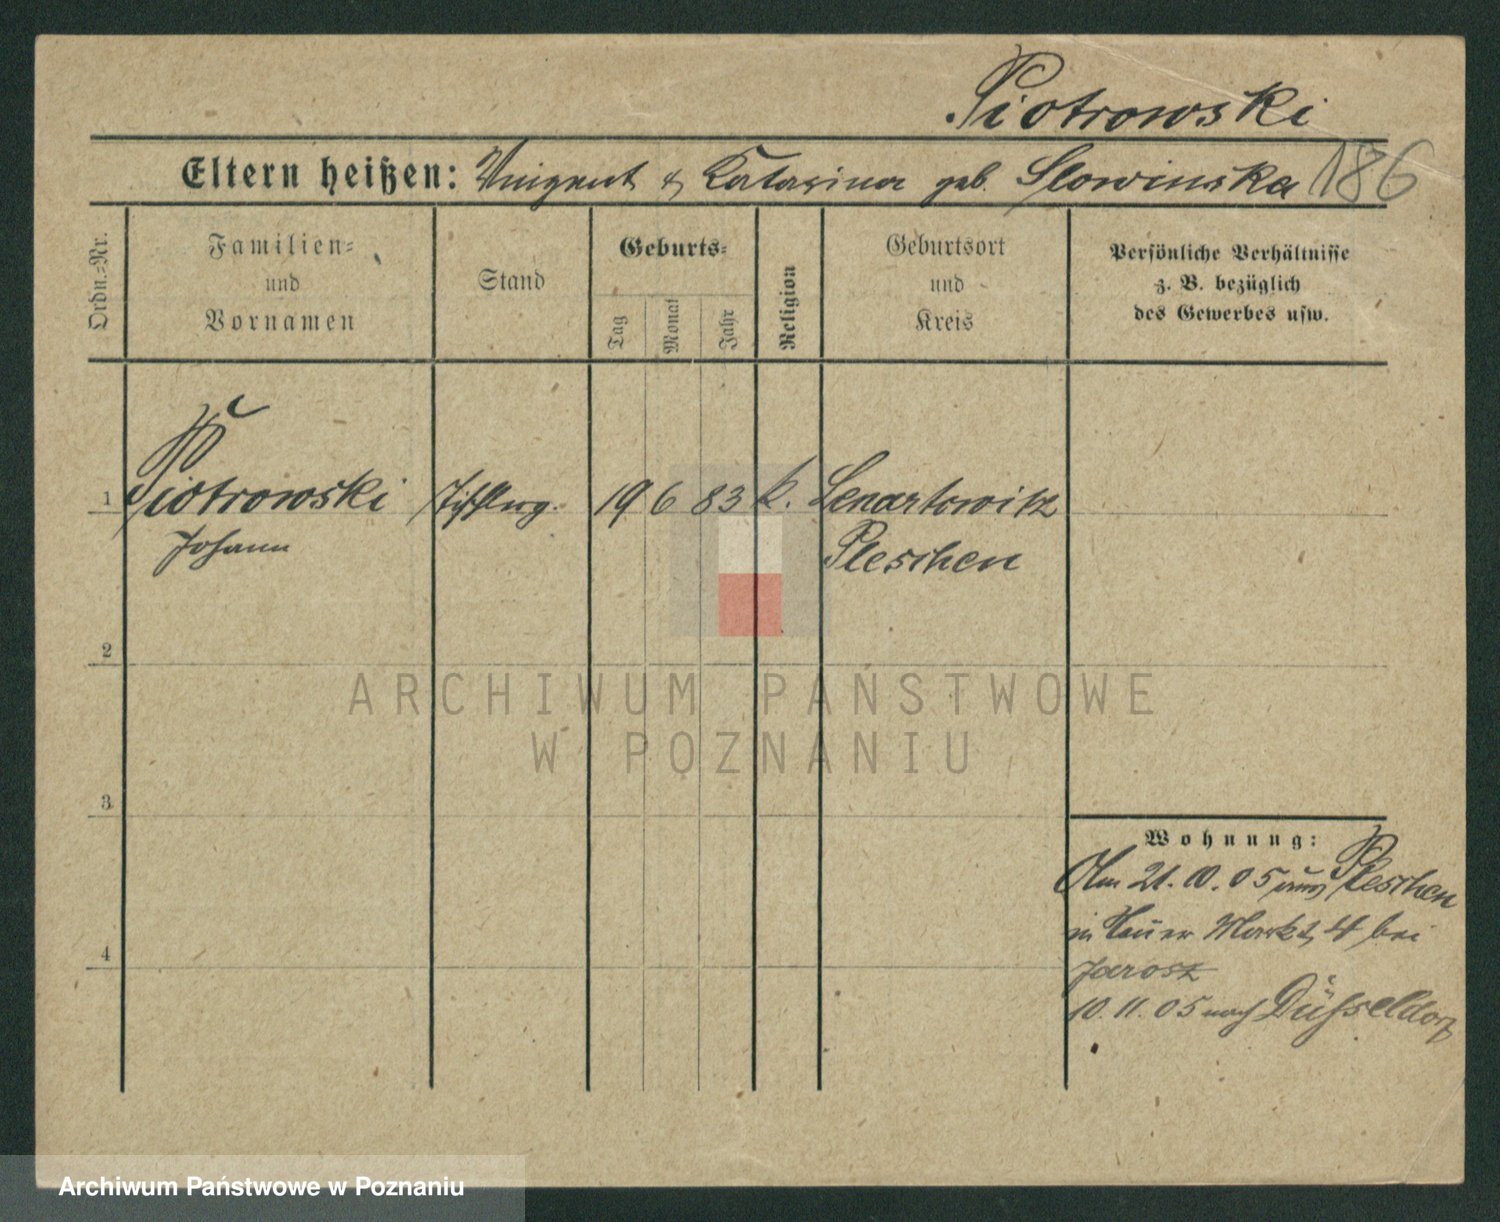 Piotrowski
Eltern heißen: Vinzent & Katarzina geb. Slowinska 186
Ordn.=Nr.
Familien=
und
Vornamen
Stand
Geburts=
Tag
Monat
Jahr
Religion
Geburtsort
und
Kreis
Persönliche Verhältnisse
z. B. bezüglich
des Gewerbes usw.
1 Piotrowski 19 6 83 k. Lenartowitz
Johann Pleschen
2
ARCHIWUM PAŃSTWOWE
W POZNANIU
3
Wohnung:
Am 21.10.05 aus Pleschen
in Neuer Markt 4 bei
Jarosz
4
10.11.05 nach Düsseldorf
Archiwum Państwowe w Poznaniu